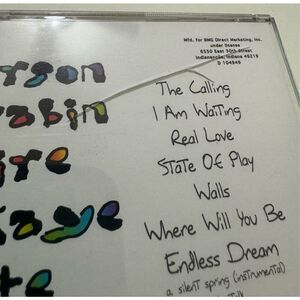 Mfd. for BMG Direct Marketing, Inc.
under license
6550 East 30th Street
Indianapolis, Indiana 46219
D 104845
The Calling
I Am Waiting
Real Love
State Of Play
Walls
Where Will You Be
Endless Dream
a silent spring (instrumental)
talk
erson
rabin
ire
aye
te